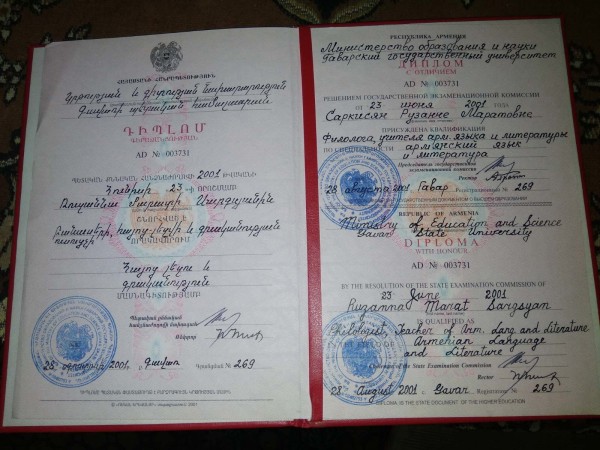 ՀԱՅԱՍՏԱՆԻ ՀԱՆՐԱՊԵՏՈՒԹՅՈՒՆ
Կրթության և գիտության նախարարություն
Գավառի պետական համալսարան
ԴԻՊԼՈՄ
ԳԵՐԱԶԱՆՑՈՒԹՅԱՆ
AD № 003731
ՊԵՏԱԿԱՆ ՔՆՆԱԿԱՆ ՀԱՆՁՆԱԺՈՂՈՎԻ 2001 ԹՎԱԿԱՆԻ
Հունիսի 23-Ի ՈՐՈՇՄԱՄԲ
Ռուզաննա Մարատի Սարգսյանին
ՇՆՈՐՀՎԱԾ Է
Բանասերի, հայոց լեզվի և գրականության
ուսուցչի
ՈՐԱԿԱՎՈՐՈՒՄ
Հայոց լեզու և
գրականություն
ՄԱՍՆԱԳԻՏՈՒԹՅԱՄԲ
Պետական քննական
հանձնաժողովի նախագահ
Ռեկտոր
28 օգոստոսի 2001, Գավառ Գրանցման № 269
РЕСПУБЛИКА АРМЕНИЯ
Министерство образования и науки
Гаварский государственный университет
ДИПЛОМ
С ОТЛИЧИЕМ
AD № 003731
РЕШЕНИЕМ ГОСУДАРСТВЕННОЙ ЭКЗАМЕНАЦИОННОЙ КОМИССИИ
ОТ 23 июня 2001 ГОДА
Саркисян Рузанне Маратовне
ПРИСУЖДЕНА КВАЛИФИКАЦИЯ
Филолога, учителя арм. языка и литературы
ПО СПЕЦИАЛЬНОСТИ армянский язык
и литература
Председатель государственной
экзаменационной комиссии
Ректор
28 августа 2001 Гавар Регистрационный № 269
REPUBLIC OF ARMENIA
Ministry of Education and Science
Gavar State University
DIPLOMA
WITH HONOUR
AD № 003731
BY THE RESOLUTION OF THE STATE EXAMINATION COMMISSION OF
23 June 2001
Ruzanna Marat Sargsyan
IS QUALIFIED AS
Philologist, Teacher of Arm. Lang. and Literature
Armenian Language
and Literature
Chairman of the State Examination Commission
Rector
28 August 2001 Gavar Registration № 269
DIPLOMA IS THE STATE DOCUMENT OF THE HIGHER EDUCATION